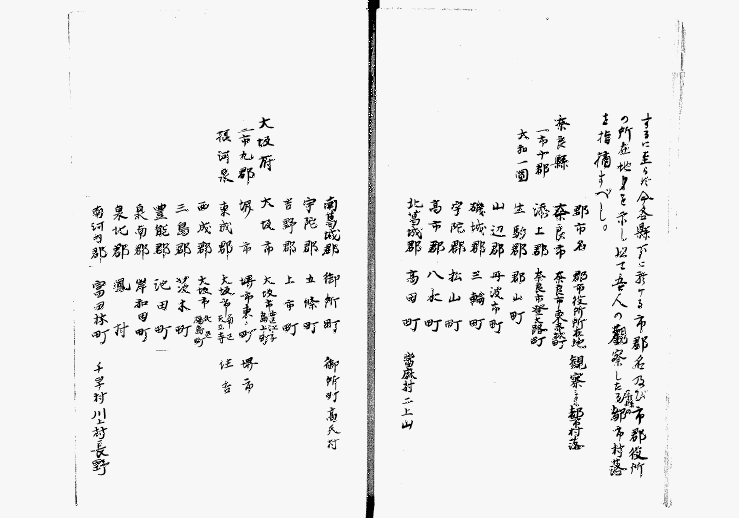 するに至らず今各縣下に於ける市郡名及び市郡役所
の所在地等を示し以て吾人の觀察したる都市村落
を指摘すべし。
奈良縣
一市十郡
大和一圓
郡市名 郡市役所所在地 観察 都市村落
奈良市 奈良市東
添上郡 奈良市登大路町
生駒郡 郡山町
山辺郡 丹波市町
磯城郡 三輪町
宇陀郡 松山町
高市郡 八木町
北葛城郡 高田町 當麻村二上山
南葛城郡 御所町 御所町
宇陀郡 五條町
吉野郡 上市町
大阪府
一市九郡
摂河泉
大坂市 大坂市
堺市 堺市東 町 堺市
東成郡 大坂市 住吉
西成郡 大坂市
三島郡 茨木町
豊能郡 池田町
泉南郡 岸和田町
泉北郡 鳳村
南河内郡 富田林町 千早村 川上村 長野